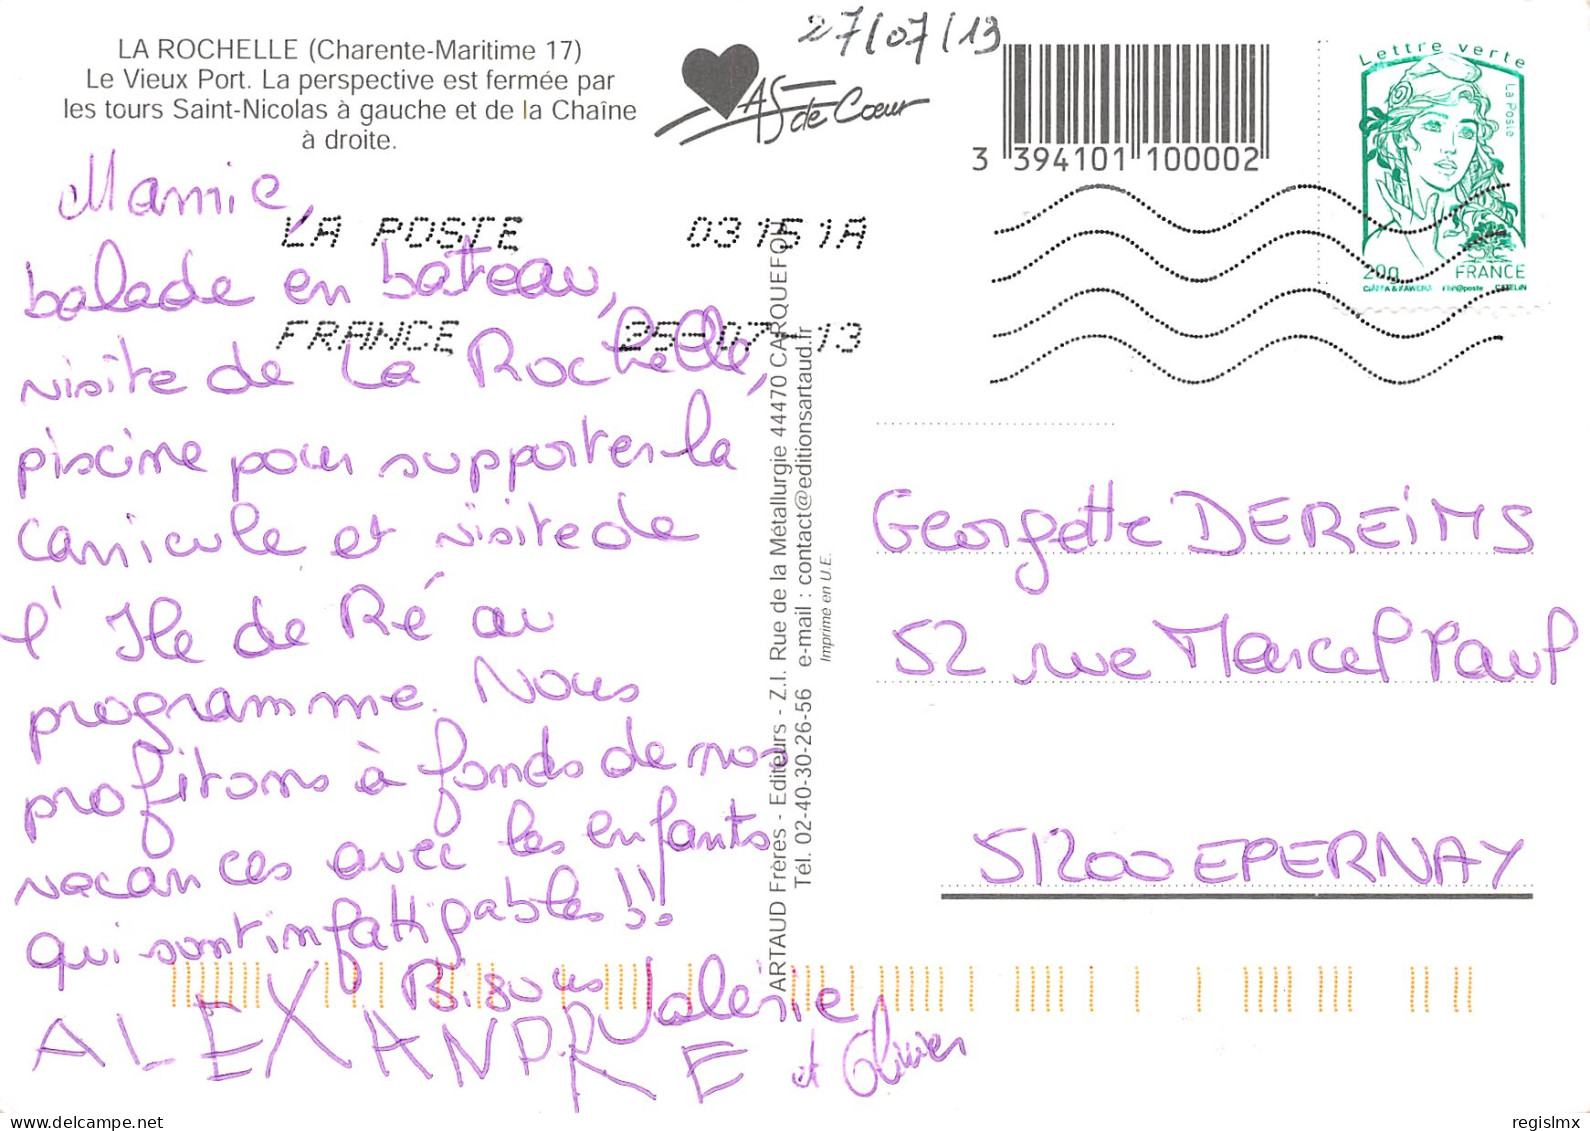 LA ROCHELLE (Charente-Maritime 17)
Le Vieux Port. La perspective est fermée par
les tours Saint-Nicolas à gauche et de la Chaîne
à droite.
AS de Cœur
27/07/13
3 394101 100002
Lettre verte
La Poste
20g FRANCE
CIAPPA & KAWENA Phil@poste
LA POSTE 03151A
FRANCE 25-07-13
Mamie,
balade en bateau,
visite de La Rochelle,
piscine pour supporter la
canicule et visite de
l'Ile de Ré au
programme. Nous
profitons à fonds de nos
vacances avec les enfants
qui sont infatigables !!
Bisous Valérie
et Olivier
ALEXANDRE
ARTAUD Frères - Editeurs - Z.I. Rue de la Métallurgie 44470 CARQUEFOU
Tél. 02-40-30-26-56 e-mail : contact@editionsartaud.fr
Imprimé en U.E.
Georgette DEREiMS
52 rue Marcel Paul
51200 EPERNAY
www.delcampe.net
regislmx